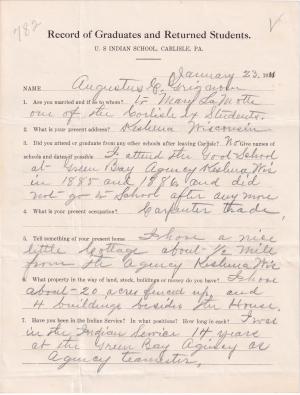 782
Record of Graduates and Returned Students.
U. S INDIAN SCHOOL, CARLISLE, PA.
January 23. 1911
NAME Augustus C. Grignon
1. Are you married and if so to whom? to Mary LaMotte
one of the Carlisle Ex Students.
2. What is your present address? Keshena Wisconsin
3. Did you attend or graduate from any other schools after leaving Carlisle? No Give names of
schools and dates if possible I attend the Gov School
at Green Bay Agency Keshena Wis
in 1885 and 1886, and did
not go to School after any more
4. What is your present occupation? Carpenter trade,
5. Tell something of your present home I have a nice
little Cottage about ½ mile
from the Agency Keshena Wis
6. What property in the way of land, stock, buildings or money do you have? I have
about 20 acres fenced up, and
4 buildings besides the House.
7. Have you been in the Indian Service? In what positions? How long in each? I was
in the Indian Service 14 years
at the Green Bay Agency as
Agency teamster,